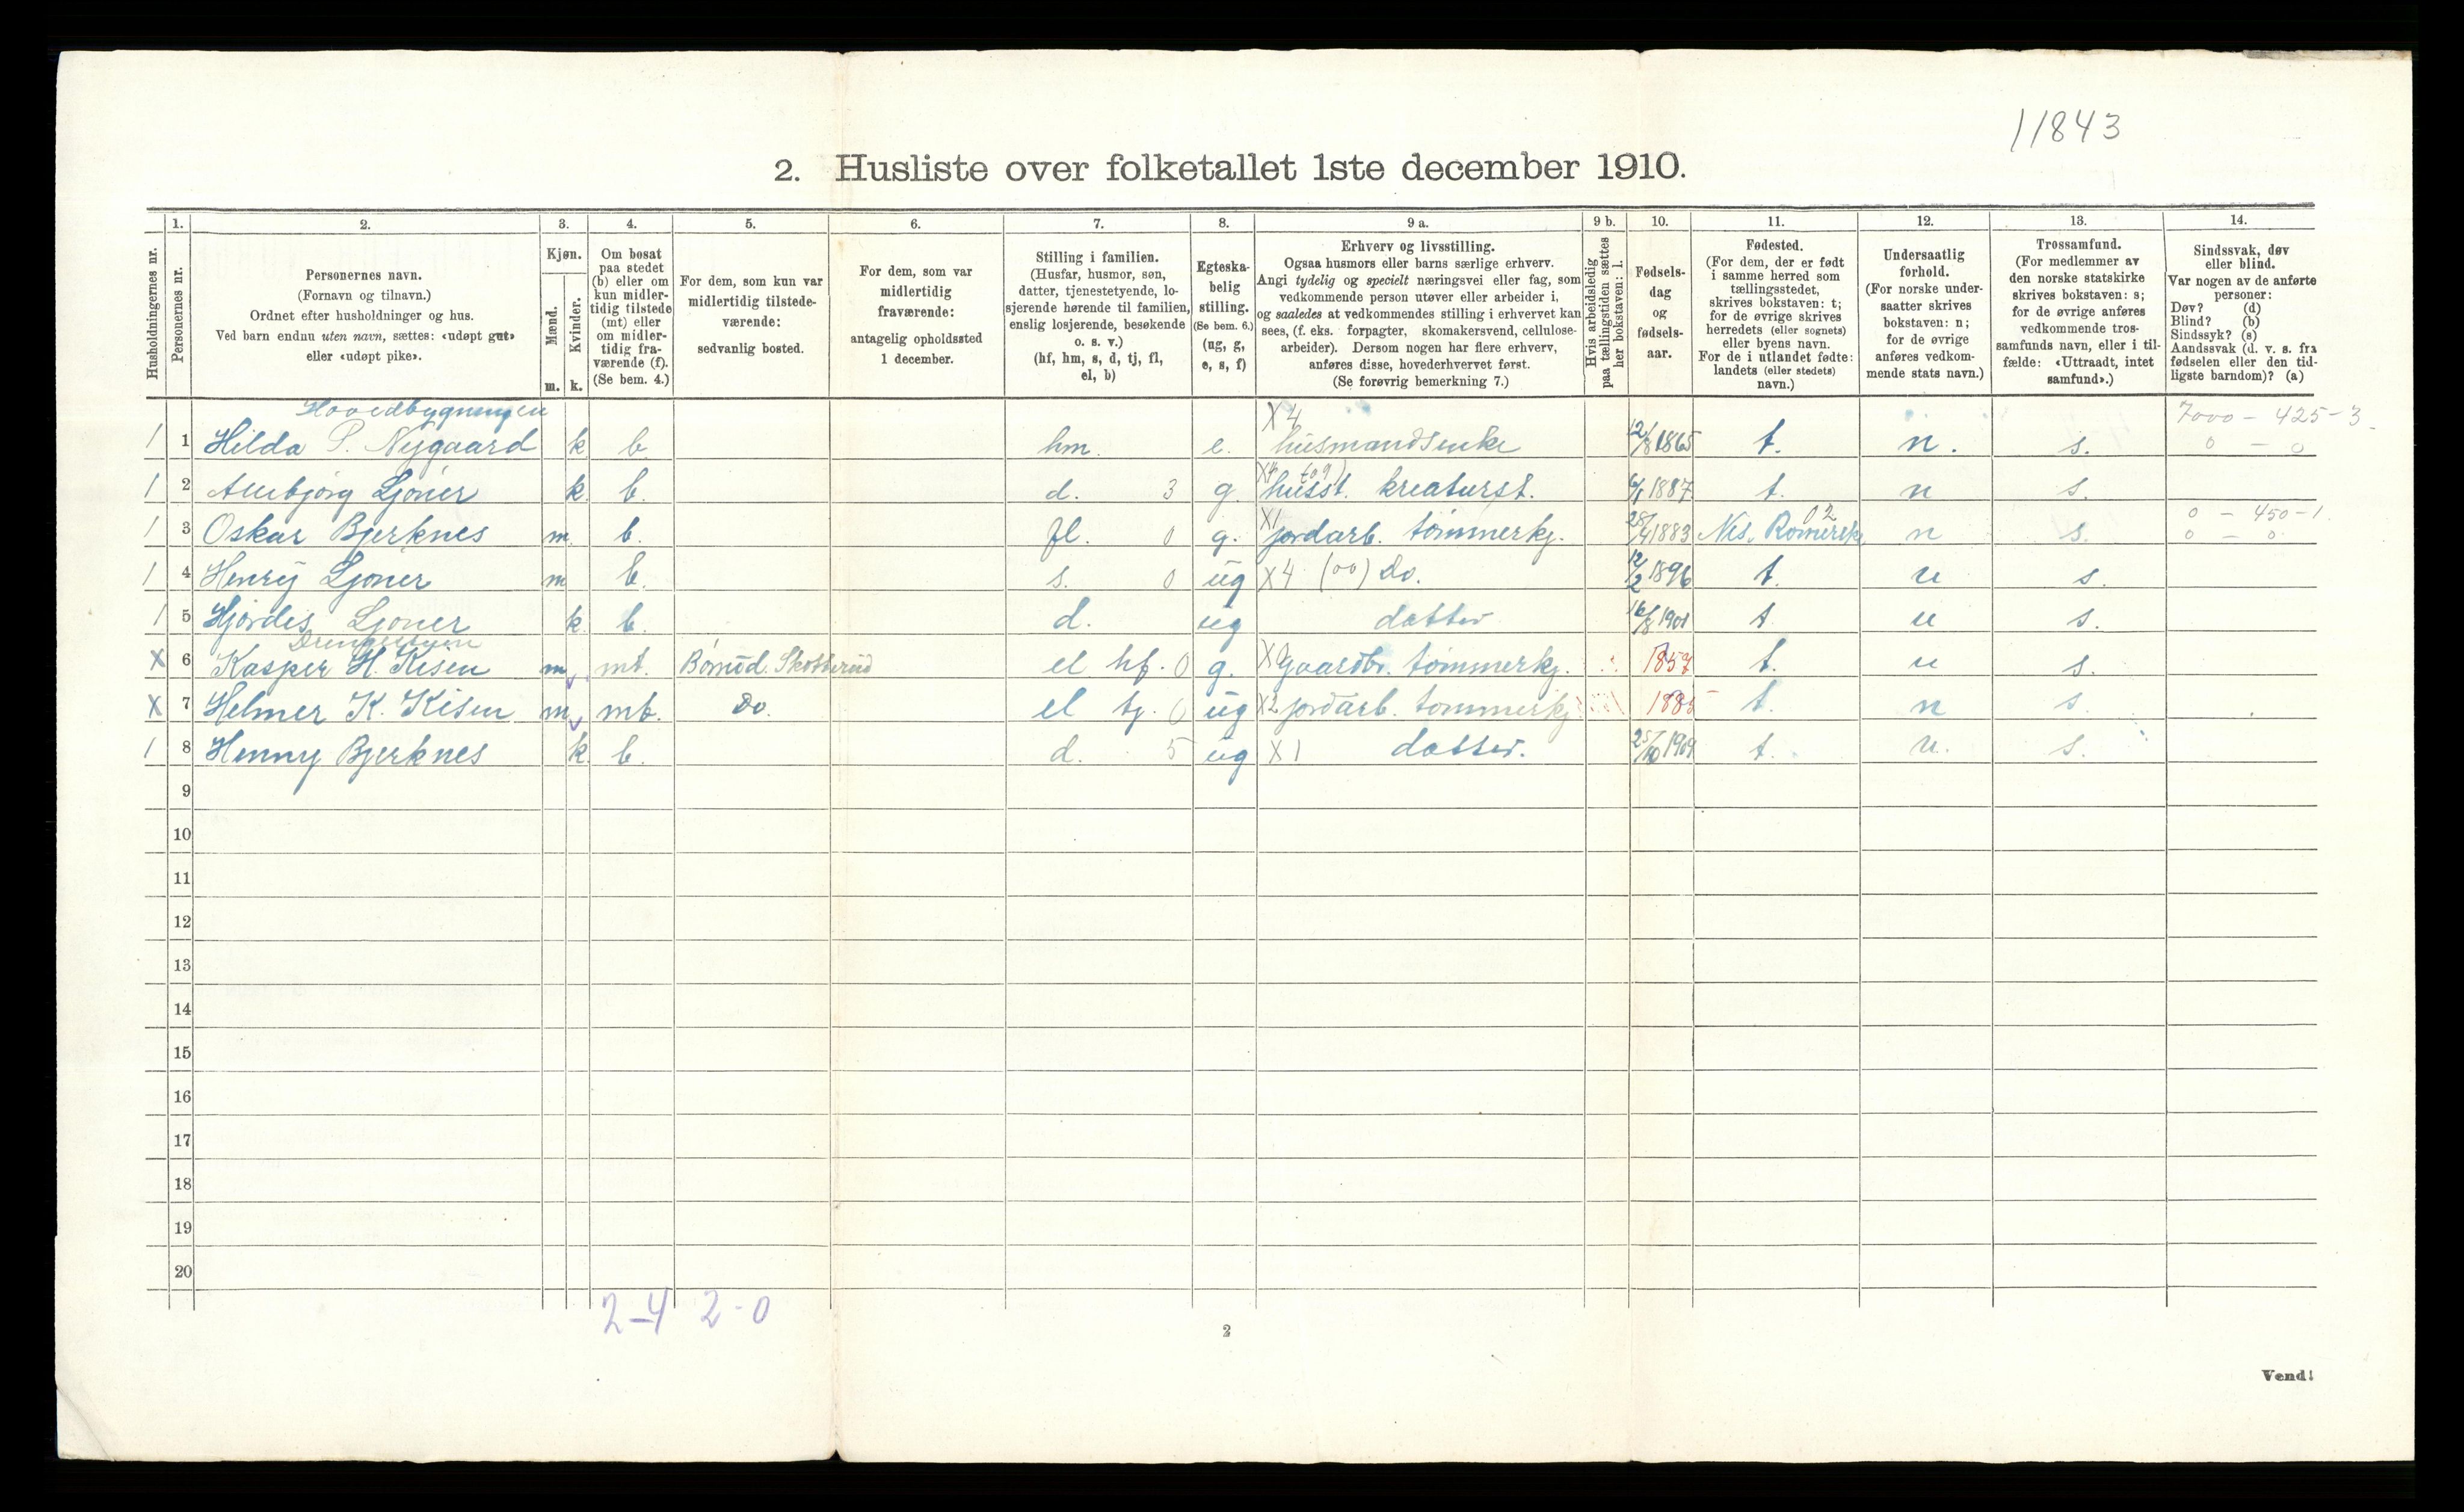 11843
2. Husliste over folketallet 1ste december 1910.
Husholdningernes nr.
1.
Personernes nr.
2.
Personernes navn.
(Fornavn og tilnavn.)
Ordnet efter husholdninger og hus.
Ved barn endnu uten navn, sættes: «udøpt gut»
eller «udøpt pike».
3.
Kjøn.
Mænd.
Kvinder.
m. k.
4.
Om bosat
paa stedet
(b) eller om
kun midler-
tidig tilstede
(mt) eller
om midler-
tidig fra-
værende (f).
(Se bem. 4.)
5.
For dem, som kun var
midlertidig tilstede-
værende:
sedvanlig bosted.
6.
For dem, som var
midlertidig
fraværende:
antagelig opholdssted
1 december.
7.
Stilling i familien.
(Husfar, husmor, søn,
datter, tjenestetyende, lo-
sjerende hørende til familien,
enslig losjerende, besøkende
o. s. v.)
(hf, hm, s, d, tj, fl,
el, b)
8.
Egteska-
belig
stilling.
(Se bem. 6.)
(ug, g,
e, s, f)
9 a.
Erhverv og livsstilling.
Ogsaa husmors eller barns særlige erhverv.
Angi tydelig og specielt næringsvei eller fag, som
vedkommende person utøver eller arbeider i,
og saaledes at vedkommendes stilling i erhvervet kan
sees, (f. eks. forpagter, skomakersvend, cellulose-
arbeider). Dersom nogen har flere erhverv,
anføres disse, hovederhvervet først.
(Se forøvrig bemerkning 7.)
9 b.
Hvis arbeidsledig
paa tællingstiden sættes
her bokstaven: l.
10.
Fødsels-
dag
og
fødsels-
aar.
11.
Fødested.
(For dem, der er født
i samme herred som
tællingsstedet,
skrives bokstaven: t;
for de øvrige skrives
herredets (eller sognets)
eller byens navn.
For de i utlandet fødte:
landets (eller stedets)
navn.)
12.
Undersaatlig
forhold.
(For norske under-
saatter skrives
bokstaven: n;
for de øvrige
anføres vedkom-
mende stats navn.)
13.
Trossamfund.
(For medlemmer av
den norske statskirke
skrives bokstaven: s;
for de øvrige anføres
vedkommende tros-
samfunds navn, eller i til-
fælde: «Uttraadt, intet
samfund».)
14.
Sindssvak, døv
eller blind.
Var nogen av de anførte
personer:
Døv? (d)
Blind? (b)
Sindssyk? (s)
Aandssvak (d. v. s. fra
fødselen eller den tid-
ligste barndom)? (a)
Hovedbygningen X4 7000 - 425-3
1 1 Hilda P. Nygaard k b. hm. e. husmandsenke 12/8 1865 t. n. s. 0 - 0
1 2 Ljöner k. b. d. 3 g. X4 husst. kreaturst. 6/1 1887 t. n s.
02 0 - 450-1
1 3 Oskar Bjerknes m. b. fl. 0 g. X1 jordarb. tömmerkj. 28/4 1883 Nes. Romerike n s. 0 - 0
1 4 Henry Ljöner m b. s. 0 ug X4 (00) Do. 12/2 1896 t. n s.
1 5 Hjördis Ljöner k. b. d. ug datter 16/8 1901 t. n s.
Drengestuen
X 6 Kasper H. Kisen m. mt. Börrud. Skotterud el hf. 0 g. X0 gaardbr. tömmerkj. 1857 t. n s.
X 7 Helmer K. Kisen m. mt. Do. el tj. 0 ug X2 jordarb. tömmerkj 1885 t. n s.
1 8 Henny Bjerknes k. b. d. 5 ug X1 datter. 25/10 1909 t. n. s.
9
10
11
12
13
14
15
16
17
18
19
20
2-4 2-0
2
Vend!